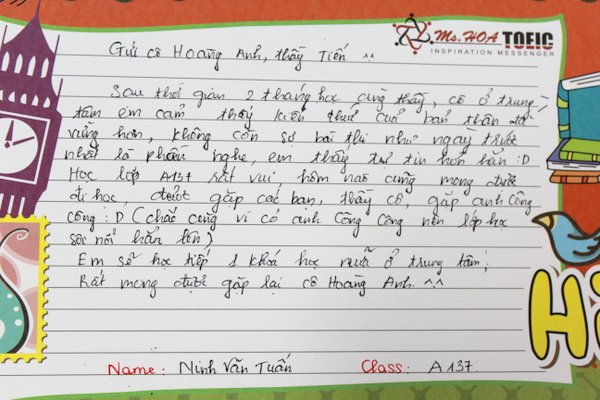 Ms. HOA TOEIC
INSPIRATION MESSENGER
Gửi cô Hoàng Anh, thầy Tiến ^^
Sau thời gian 2 tháng học cùng thầy, cô ở trung
tâm em cảm thấy kiến thức của bản thân đã
vững hơn, không còn sợ bài thi như ngày trước
nhất là phần nghe, em thấy tự tin hơn hẳn :D
Học lớp A137 rất vui, hôm nào cũng mong được
đi học, được gặp các bạn, thầy cô, gặp anh Công
Công :D (chắc cũng vì có anh Công Công nên lớp học
sôi nổi hẳn lên)
Em sẽ học tiếp 1 khóa học nữa ở trung tâm;
Rất mong được gặp lại cô Hoàng Anh. ^^
Hi
Name: Ninh Văn Tuấn Class: A137